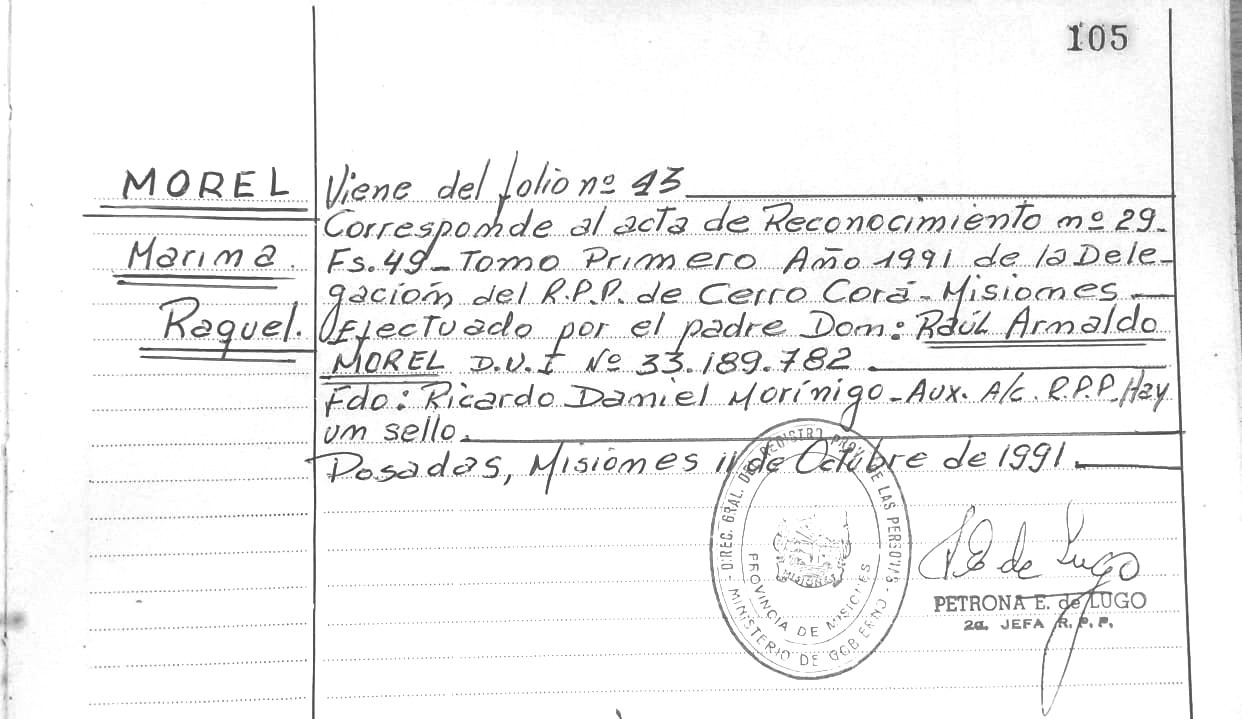 105
MOREL
Marina
Raquel.
Viene del folio nº 43
Corresponde al acta de Reconocimiento nº 29.
Fs. 49 - Tomo Primero Año 1991 de la Dele-
gación del R.P.P. de Cerro Corá - Misiones
Efectuado por el padre Don: Raúl Arnaldo
MOREL D.N.I Nº 33.189.782
Fdo: Ricardo Daniel Morínigo - Aux. A/c. R.P.P. Hay
un sello.
Posadas, Misiones 11 de Octubre de 1991.
DIREC. GRAL. DE REGISTRO PROV. DE LAS PERSONAS
MINISTERIO DE GOBIERNO
PROVINCIA DE MISIONES
MISIONES
P E de Lugo
PETRONA E. de LUGO
2a. JEFA R. P. P.